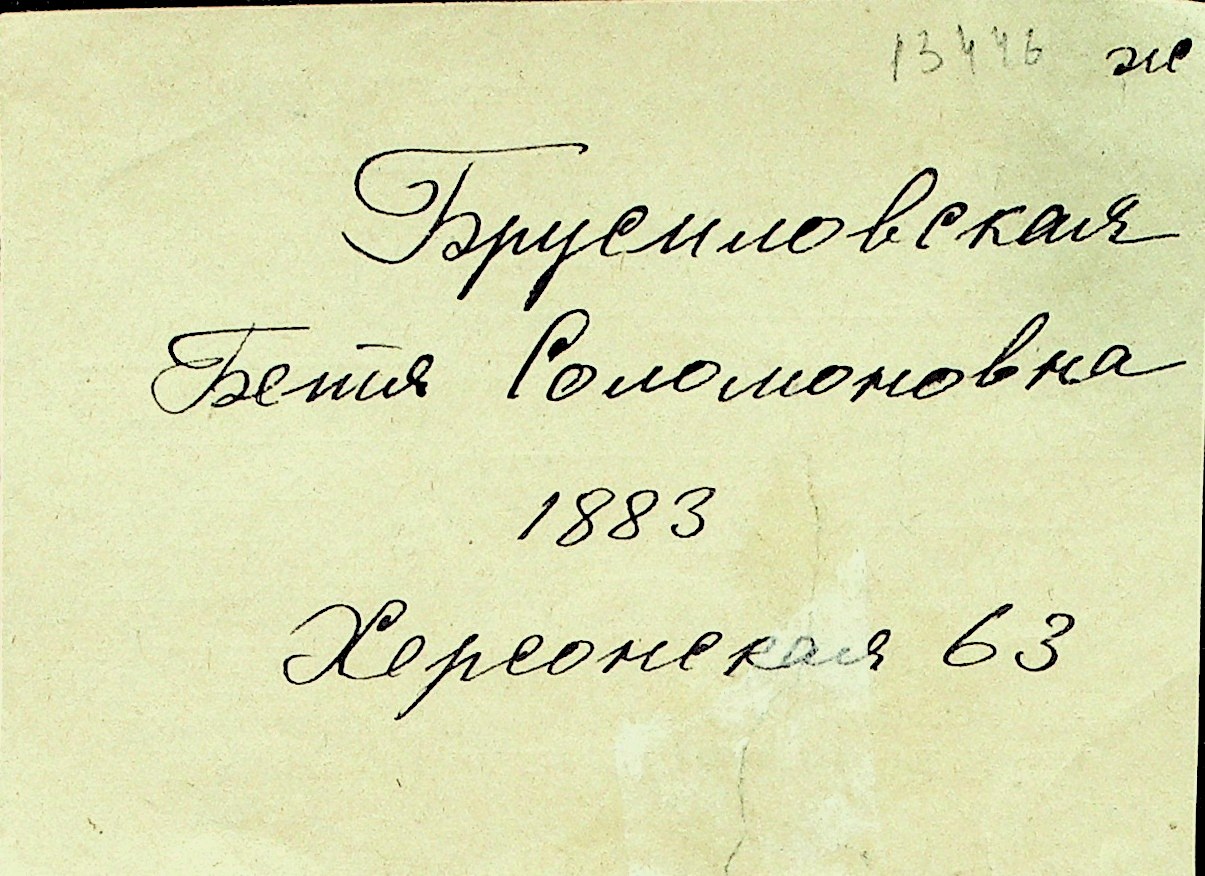 13446 ж
Брусиловская
Бетя Соломоновна
1883
Херсонская 63